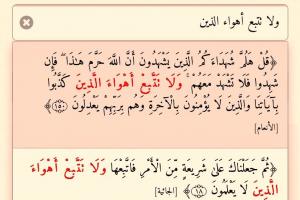 ولا تتبع أهواء الذين
﴿قُلْ هَلُمَّ شُهَدَاءَكُمُ الَّذِينَ يَشْهَدُونَ أَنَّ اللَّهَ حَرَّمَ هَٰذَا ۖ فَإِن
شَهِدُوا فَلَا تَشْهَدْ مَعَهُمْ ۚ وَلَا تَتَّبِعْ أَهْوَاءَ الَّذِينَ كَذَّبُوا
بِآيَاتِنَا وَالَّذِينَ لَا يُؤْمِنُونَ بِالْآخِرَةِ وَهُم بِرَبِّهِمْ يَعْدِلُونَ ﴿١٥٠﴾﴾
[الأنعام]
﴿ثُمَّ جَعَلْنَاكَ عَلَىٰ شَرِيعَةٍ مِّنَ الْأَمْرِ فَاتَّبِعْهَا وَلَا تَتَّبِعْ أَهْوَاءَ
الَّذِينَ لَا يَعْلَمُونَ ﴿١٨﴾﴾ [الجاثية]